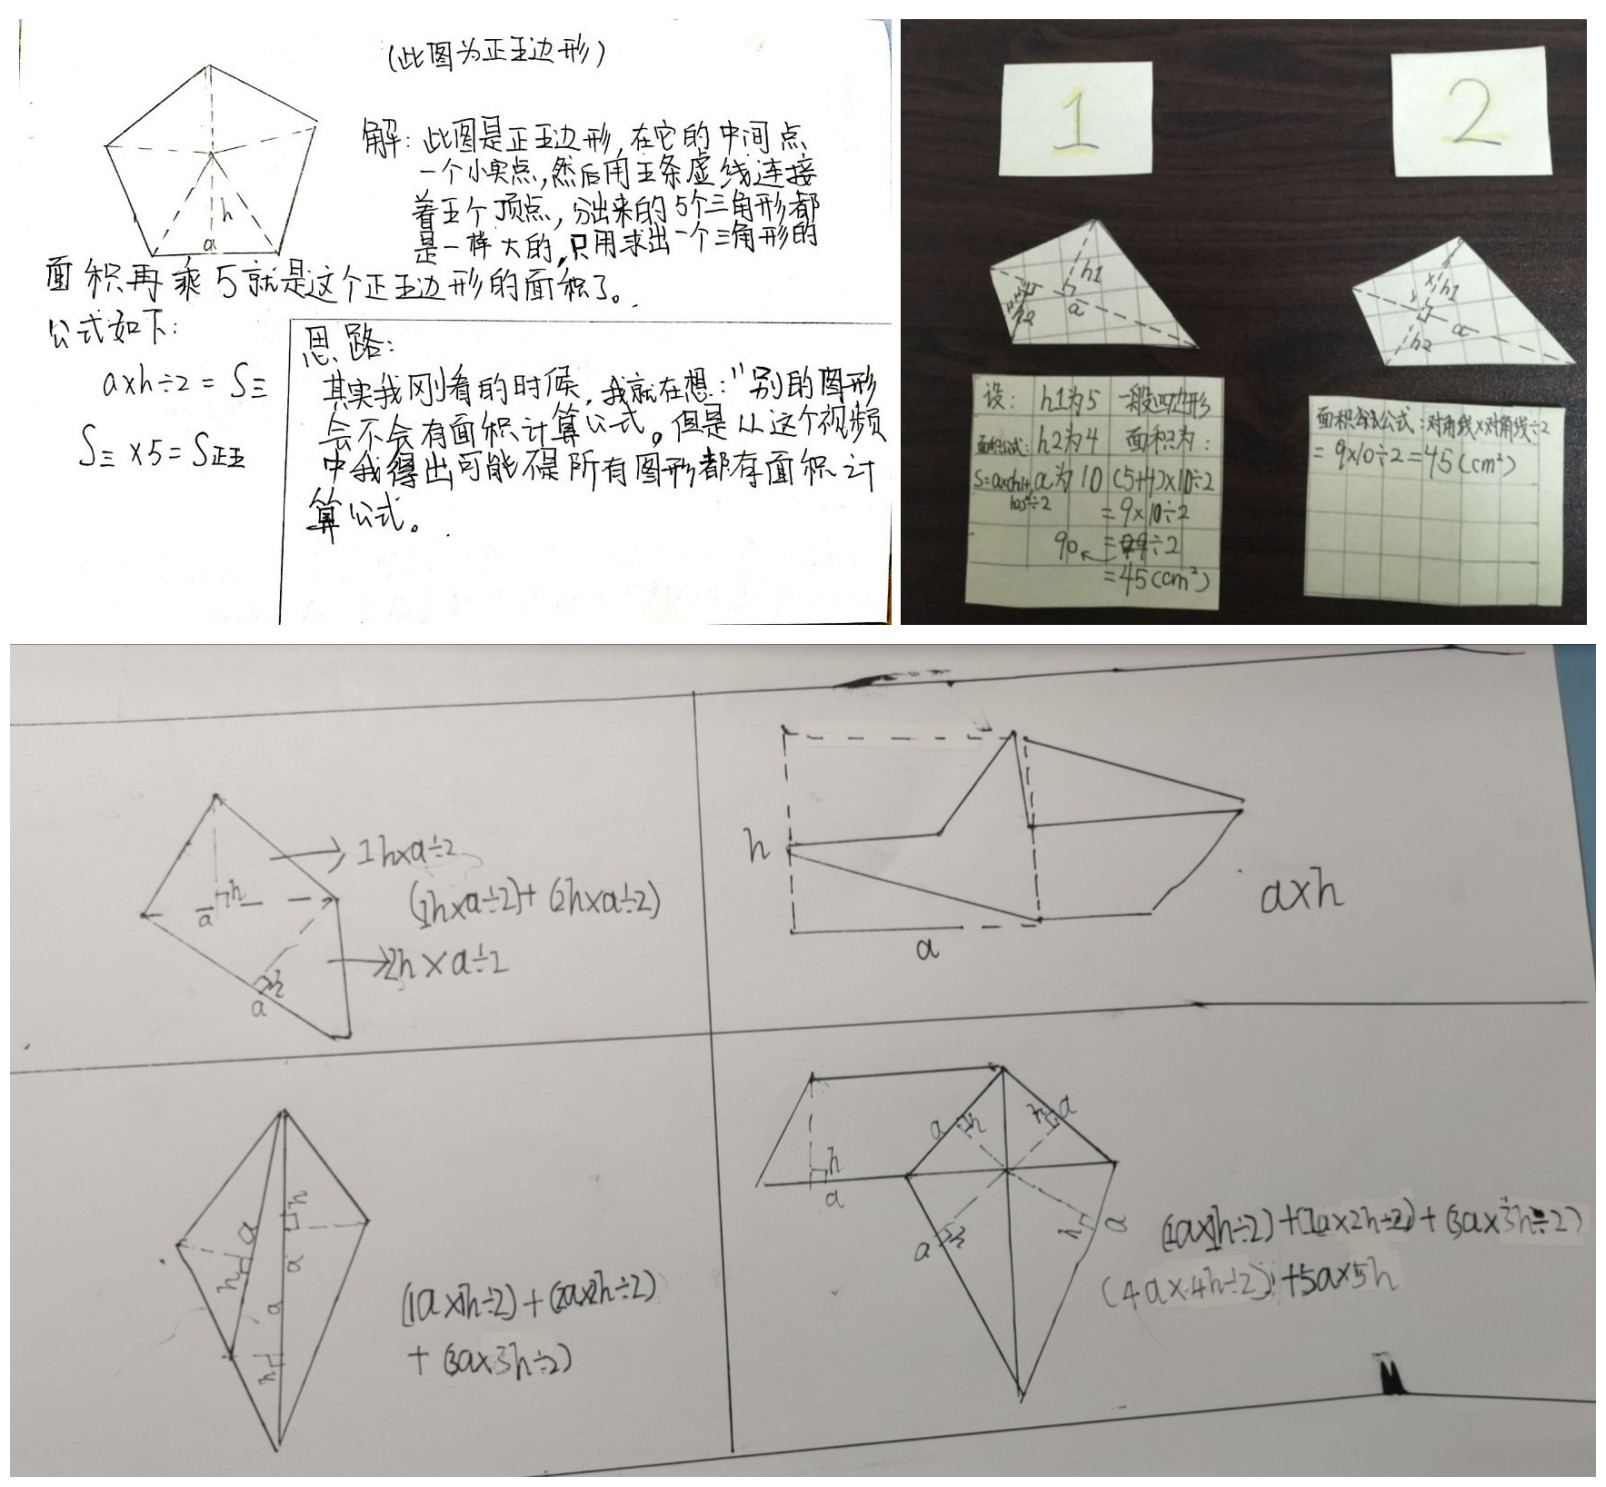 (此图为正五边形)
解:此图是正五边形,在它的中间点
一个小实点,然后用五条虚线连接
着五个顶点,分出来的5个三角形都
是一样大的,只用求出一个三角形的
面积再乘5就是这个正五边形的面积了。
h
a
公式如下:
a×h÷2=S三
S三×5=S正五
思路:
其实我刚看的时候,我就在想:"别的图形
会不会有面积计算公式。但是从这个视频
中我得出可能不是所有图形都有面积计
算公式。
1
2
h1
a
h2
x h1
x
a
h2
设: h1为5 一般四边形
面积公式: h2为4 面积为:
a为10 (5+4)×10÷2
=9×10÷2
90 = ÷2
=45(cm²)
面积公式:对角线×对角线÷2
=9×10÷2=45(cm²)
1h×a÷2
(1h×a÷2)+(2h×a÷2)
2h×a÷2
h
a
2h
a
h
a
a×h
h
a
a
h
a
h
(1a×1h÷2)+(2a×2h÷2)
+(3a×3h÷2)
a
h
h
a
h
a
a
2h
h
a
(1a×1h÷2)+(1a×2h÷2)+(3a×3h÷2)
(4a×4h÷2)+5a×5h